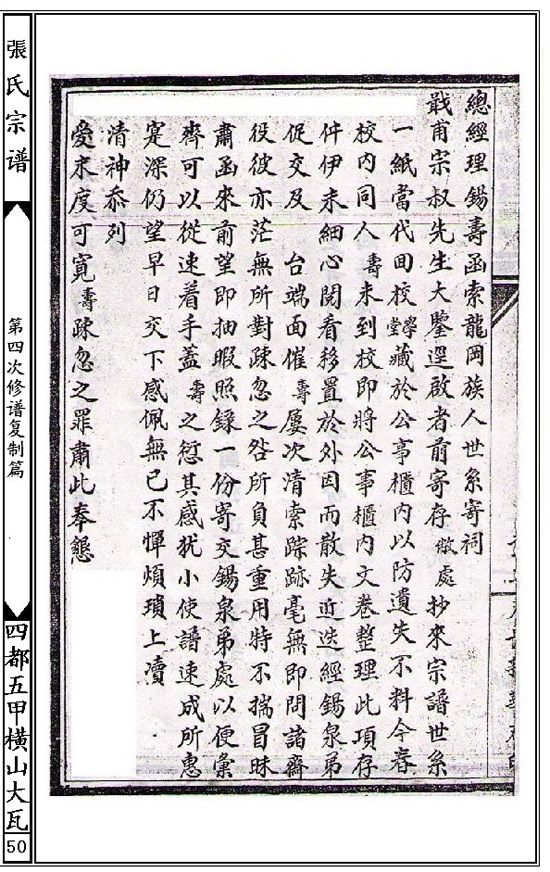 總經理錫壽函索龍岡族人世系寄祠
戢甫宗叔先生大鑒逕啟者前寄存敝處抄來宗譜世系
一紙當代回校藏於公事櫃內以防遺失不料今春
校內同人壽未到校即將公事櫃內文卷整理此項存
件伊未細心閱看移置於外因而散失近迭經錫泉弟
促交及 台端面催壽屢次清索踪跡毫無即問諸齋
役彼亦茫無所對疎忽之咎所負甚重用特不揣冒昧
肅函來前望即抽暇照錄一份寄交錫泉弟處以便彙
齊可以從速着手蓋壽之愆其感犹小使譜速成所惠
寔深仍望早日交下感佩無已不憚煩瑣上瀆
清神忝列
愛末度可寬壽疎忽之罪肅此奉懇
張氏宗谱
第四次修谱复制篇
四都五甲横山大瓦
50